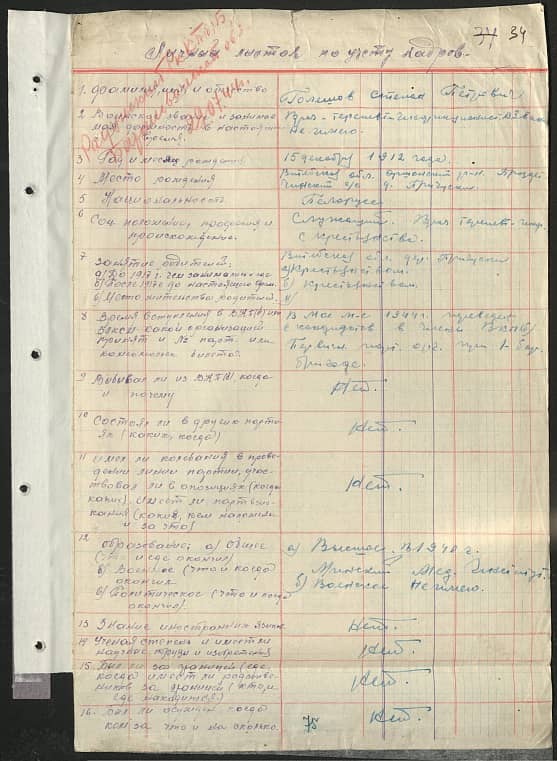 34
Личный листок по учету кадров.
1. Фамилия, имя и отчество
Степан Петрович
2 Воинское звание и занимае
мая должность в настоящ.
время.
Не имею.
3 Год и месяц рождения
15 декабря 1912 года.
4 Место рождения
Витебская обл. Оршанский р-н.
5 Национальность
Белорус
6 Соц. положение, профессия и
происхождение.
Служащий.
С крестьянства.
7 Занятие родителей,
а) До 1917 г. чем занимались
б) После 1917 г. до настоящ. врем.
в) Место жительства родителей.
Витебская обл. дер.
а) Крестьянством.
б) Крестьянством.
в)
8 Время вступления в ВКП(б) или
ВЛКСМ какой организацией
принят и № парт. или
комсомольск. билета.
В мае м-це 1944 г. переведен
с кандидатов в члены ВКП(б)
Первичн. парт. орг. при 1-
бригаде.
9 Выбывал ли из ВКП(б), когда
и почему
Нет.
10 Состоял ли в других парти-
ях (каких, когда)
Нет.
11 Имел ли колебания в прове-
дении линии партии, участ-
вовал ли в опозициях (когда
каких), имеет ли партвзыс-
кания (какие, кем наложены
и за что)
Нет.
12 Образование; а) Общее
(что и где окончил
б) Военное (что и когда
окончил
в) Политическое (что и когда
окончил).
а) Высшее. В 1940 г.
Минский Мед. Институт.
б) Военное не имею.
13 Знание иностранных языков
Нет.
14 Ученая степень и имеет ли
научные труды и изобретения
Нет.
15. Был ли за границей (где,
когда имеет ли родствен-
ников за границей (кто и
где находится.)
Нет.
16. Был ли осужден когда
кем за что и на сколько.
75
Нет.